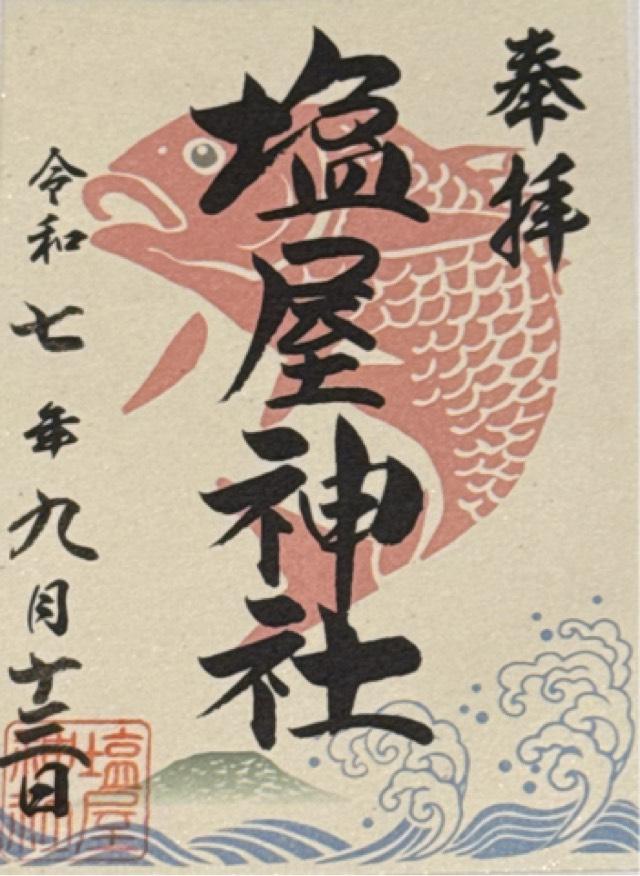 奉拝
塩屋神社
令和七年九月十二日
塩屋
神社